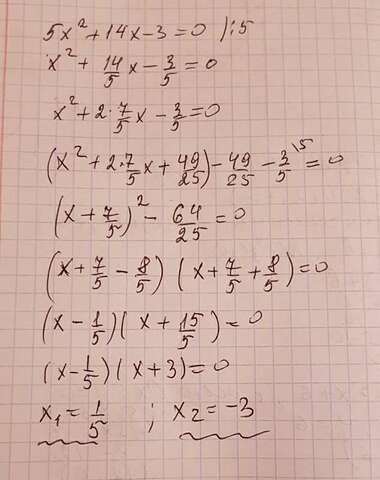 5x² + 14x - 3 = 0 /:5
x² + 14/5 x - 3/5 = 0
x² + 2·7/5 x - 3/5 = 0
(x² + 2·7/5 x + 49/25) - 49/25 - 3/5 \5 = 0
(x + 7/5)² - 64/25 = 0
(x + 7/5 - 8/5) (x + 7/5 + 8/5) = 0
(x - 1/5)(x + 15/5) = 0
(x - 1/5)(x + 3) = 0
x₁ = 1/5 ; x₂ = -3